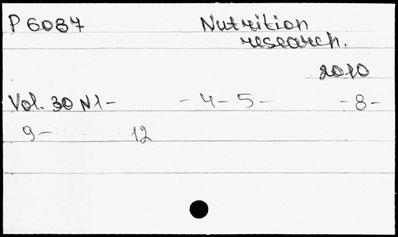 P 6087 Nutrition
research.
2010
Vol. 30 N1- -4-5- -8-
9- 12